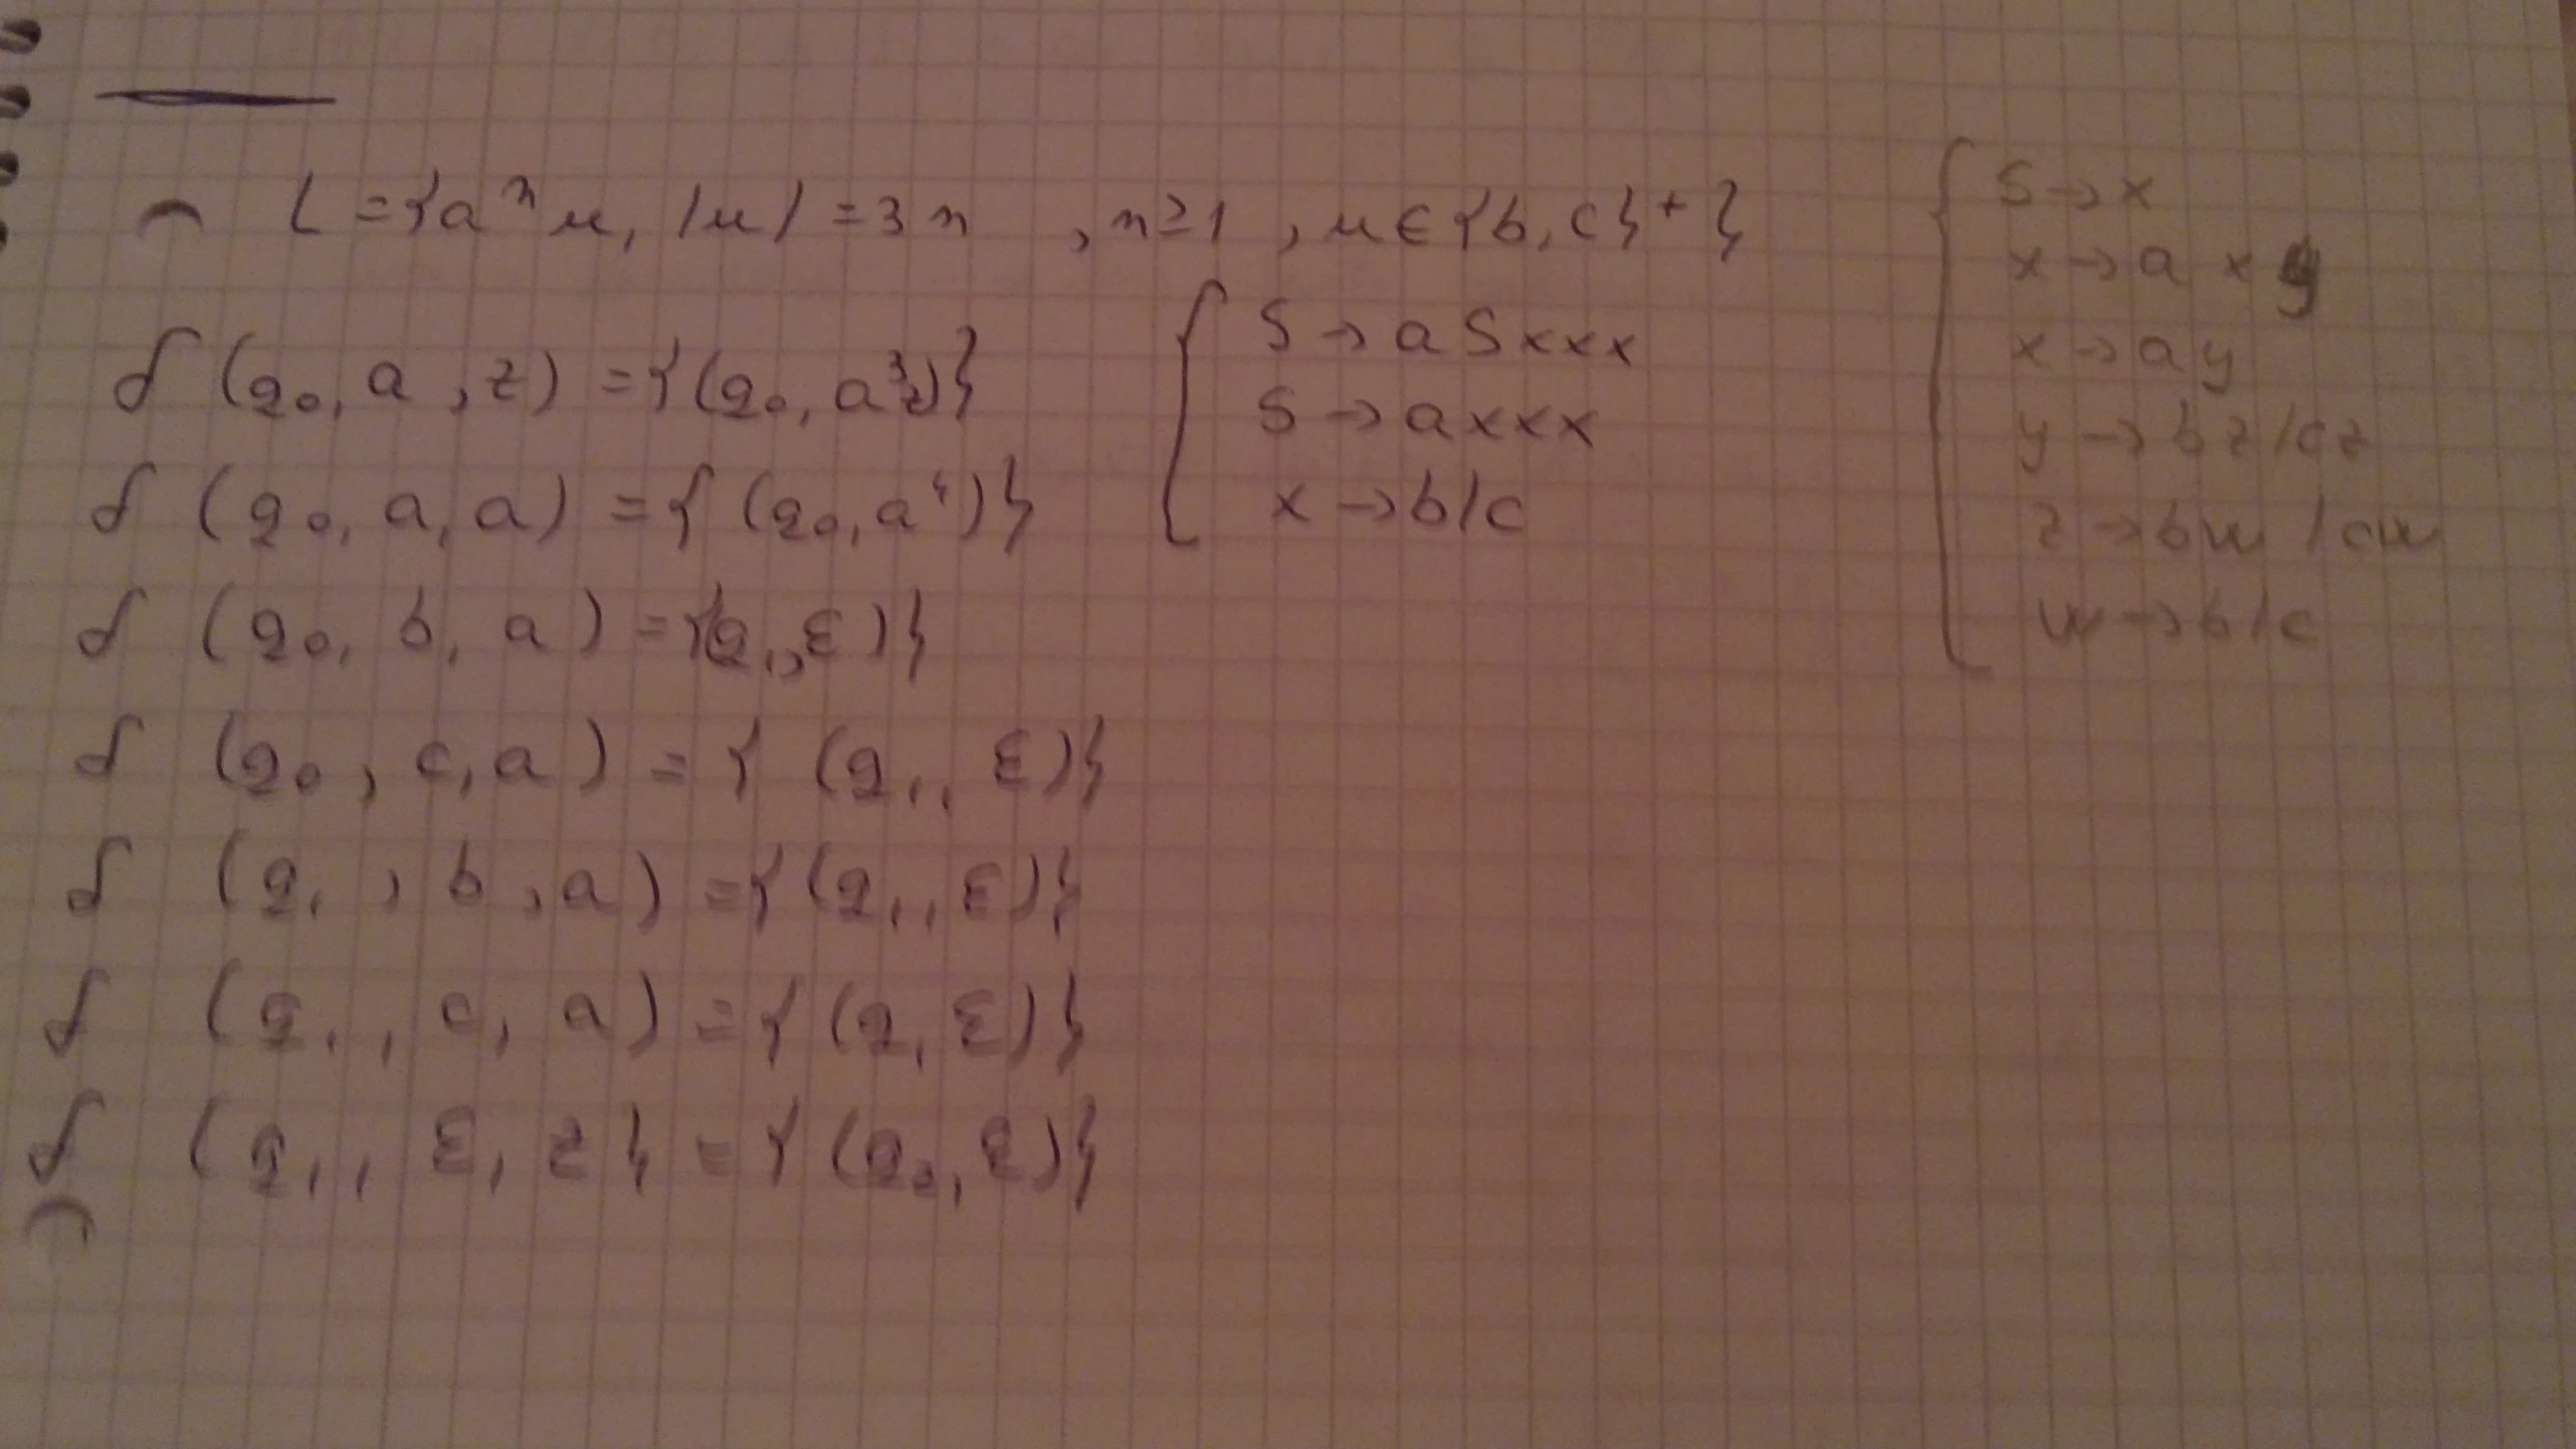 L = {aⁿu, |u| = 3n , n ≥ 1 , u ∈ {b, c}⁺}
δ (q₀, a, z) = {(q₀, a³z)}
δ (q₀, a, a) = {(q₀, a⁴)}
δ (q₀, b, a) = {(q₁, ε)}
δ (q₀, c, a) = {(q₁, ε)}
δ (q₁, b, a) = {(q₁, ε)}
δ (q₁, c, a) = {(q₁, ε)}
δ (q₁, ε, z} = {(q₂, ε)}
S → aSxxx
S → axxx
x → b/c
S → x
x → a x y
x → a y
y → bz/cz
z → bw/cw
w → b/c